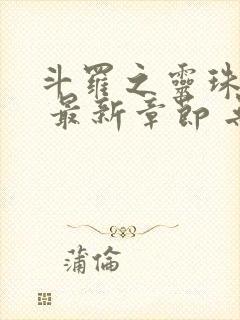 斗羅之靈珠
最新章節
蒲倫